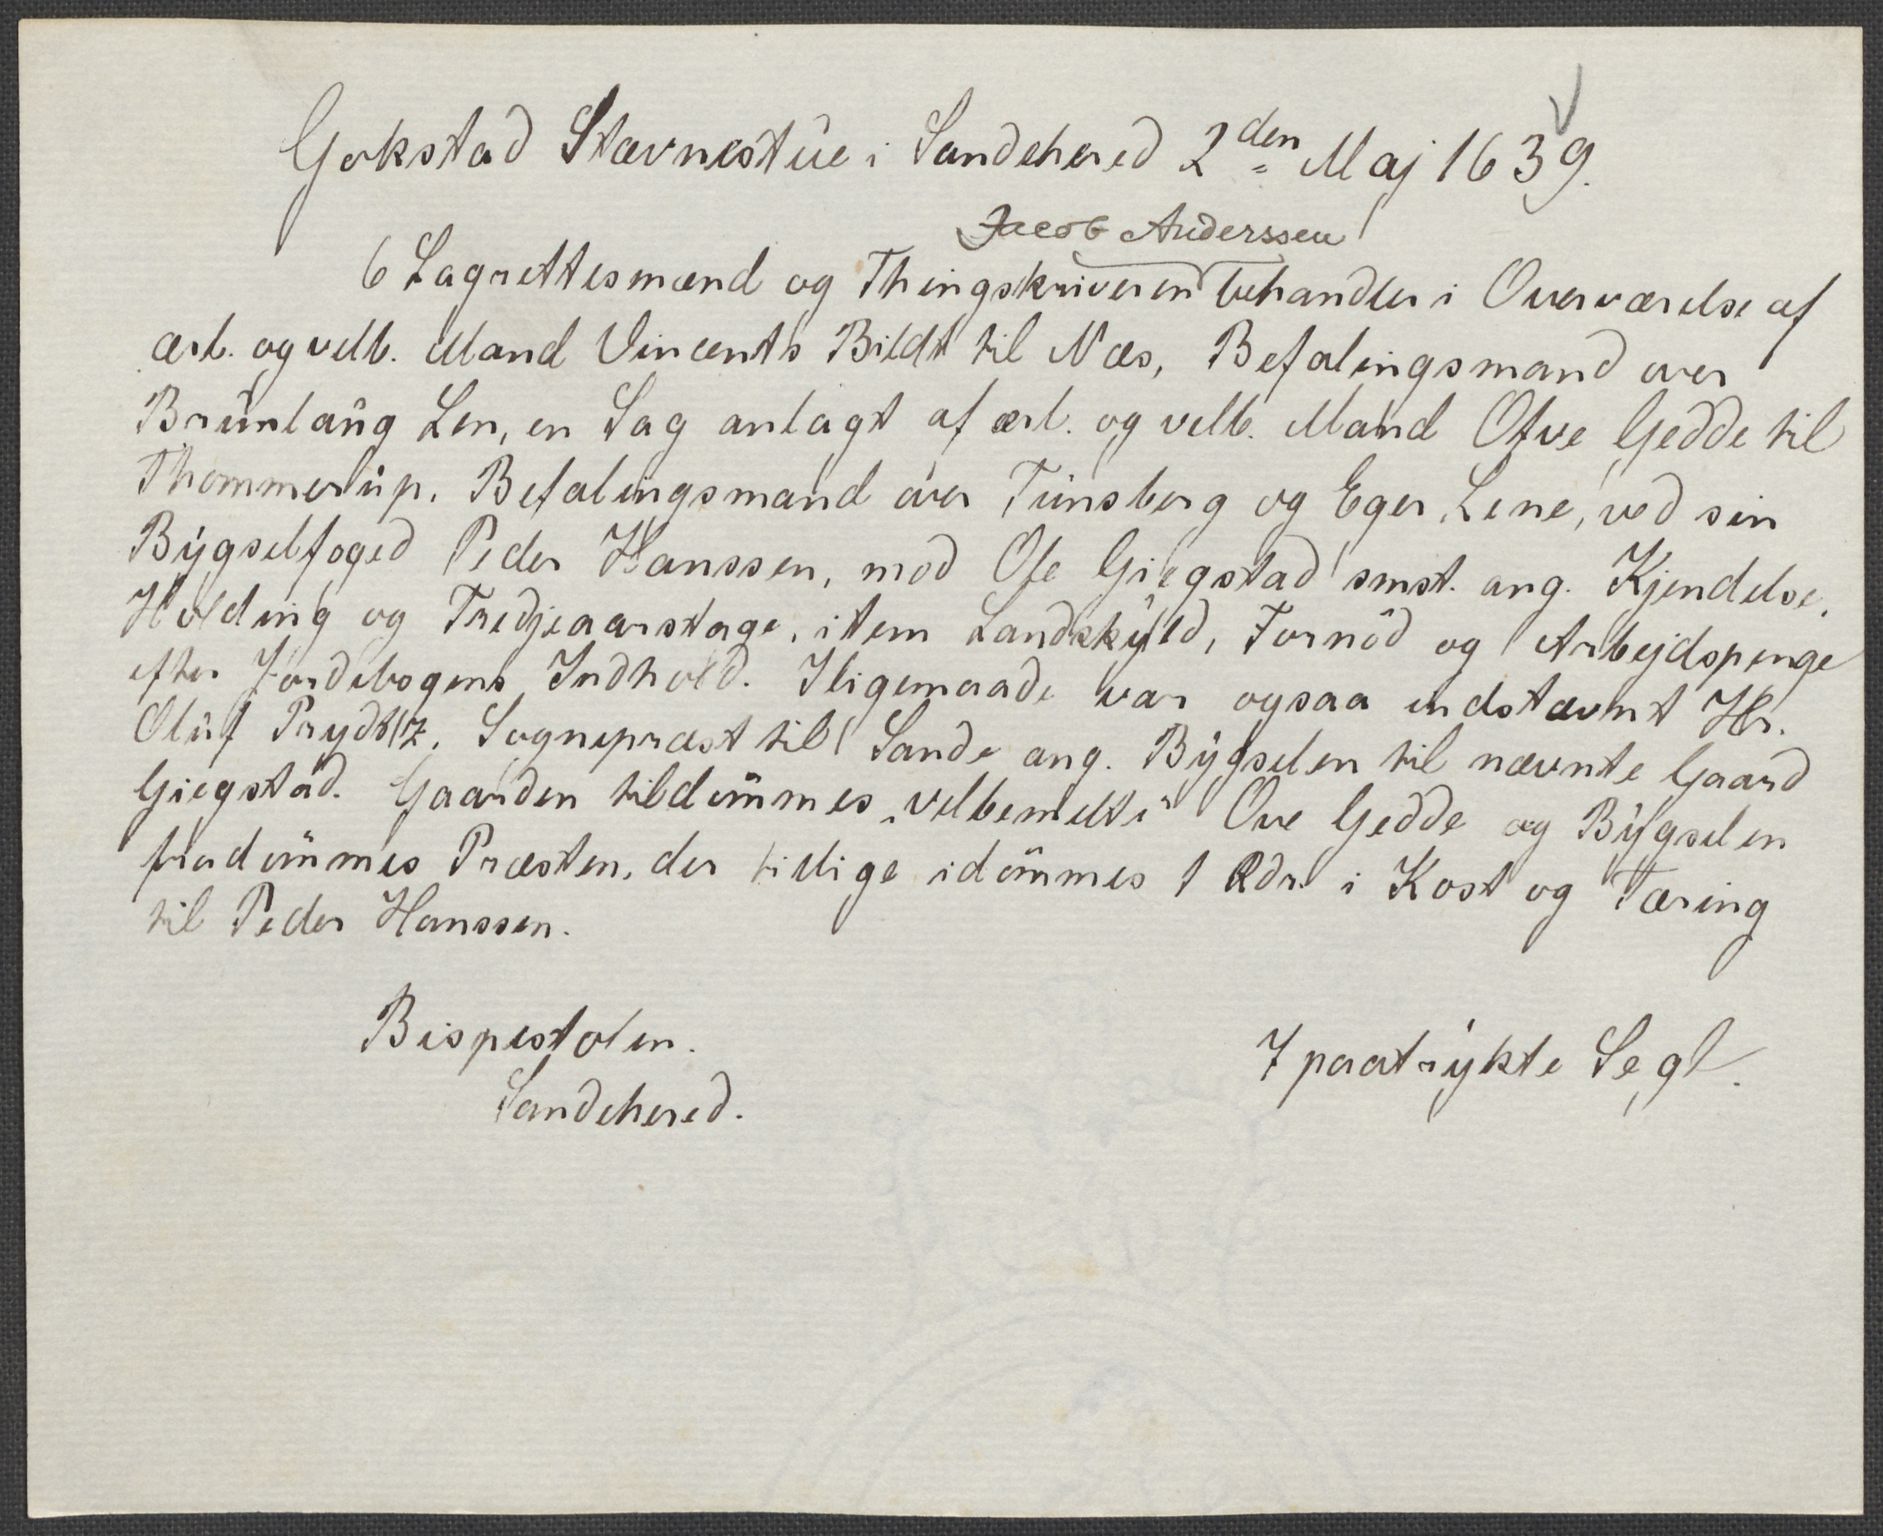 Gokstad Stævnestue i Sandehered 2den Maj 1639.
Jacob Anderssen
6 Lagrettesmænd og Thingskriveren behandler i Overværelse af
ærl. og velb. Mand Vincents Bildt til Næs, Befalingsmand over
Brunlaug Len, en Sag anlagt af ærl. og velb. Mand Ofve Gedde til
Thommerup, Befalingsmand over Tunsberg og Eger Lene, ved sin
Bygselfoged Peder Hanssen, mod Ole Giegstad smst. ang. Kjendelse,
Holding og Tredjeaarstage, item Landskyld, Fornöd og Arbejdspenge
efter Jordebogens Indhold. Iligemaade var ogsaa indstævnt Hr.
Oluf Prydtz, Sognepræst til Sande ang. Bygselen til nævnte Gaard
Giegstad. Gaarden tildömmes "velbemelte" Ove Gedde og Bygselen
fradömmes Præsten, der tillige idömmes 1 Rdr. i Kost og Tæring
til Peder Hanssen.
Bispestolen.
7 paatrykte Segl.
Sandehered.